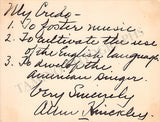 My Credo -
1. To foster music.
2. To cultivate the use
of the English language
3. To develop the
American Singer.
Very Sincerely
Allen Hinckley.